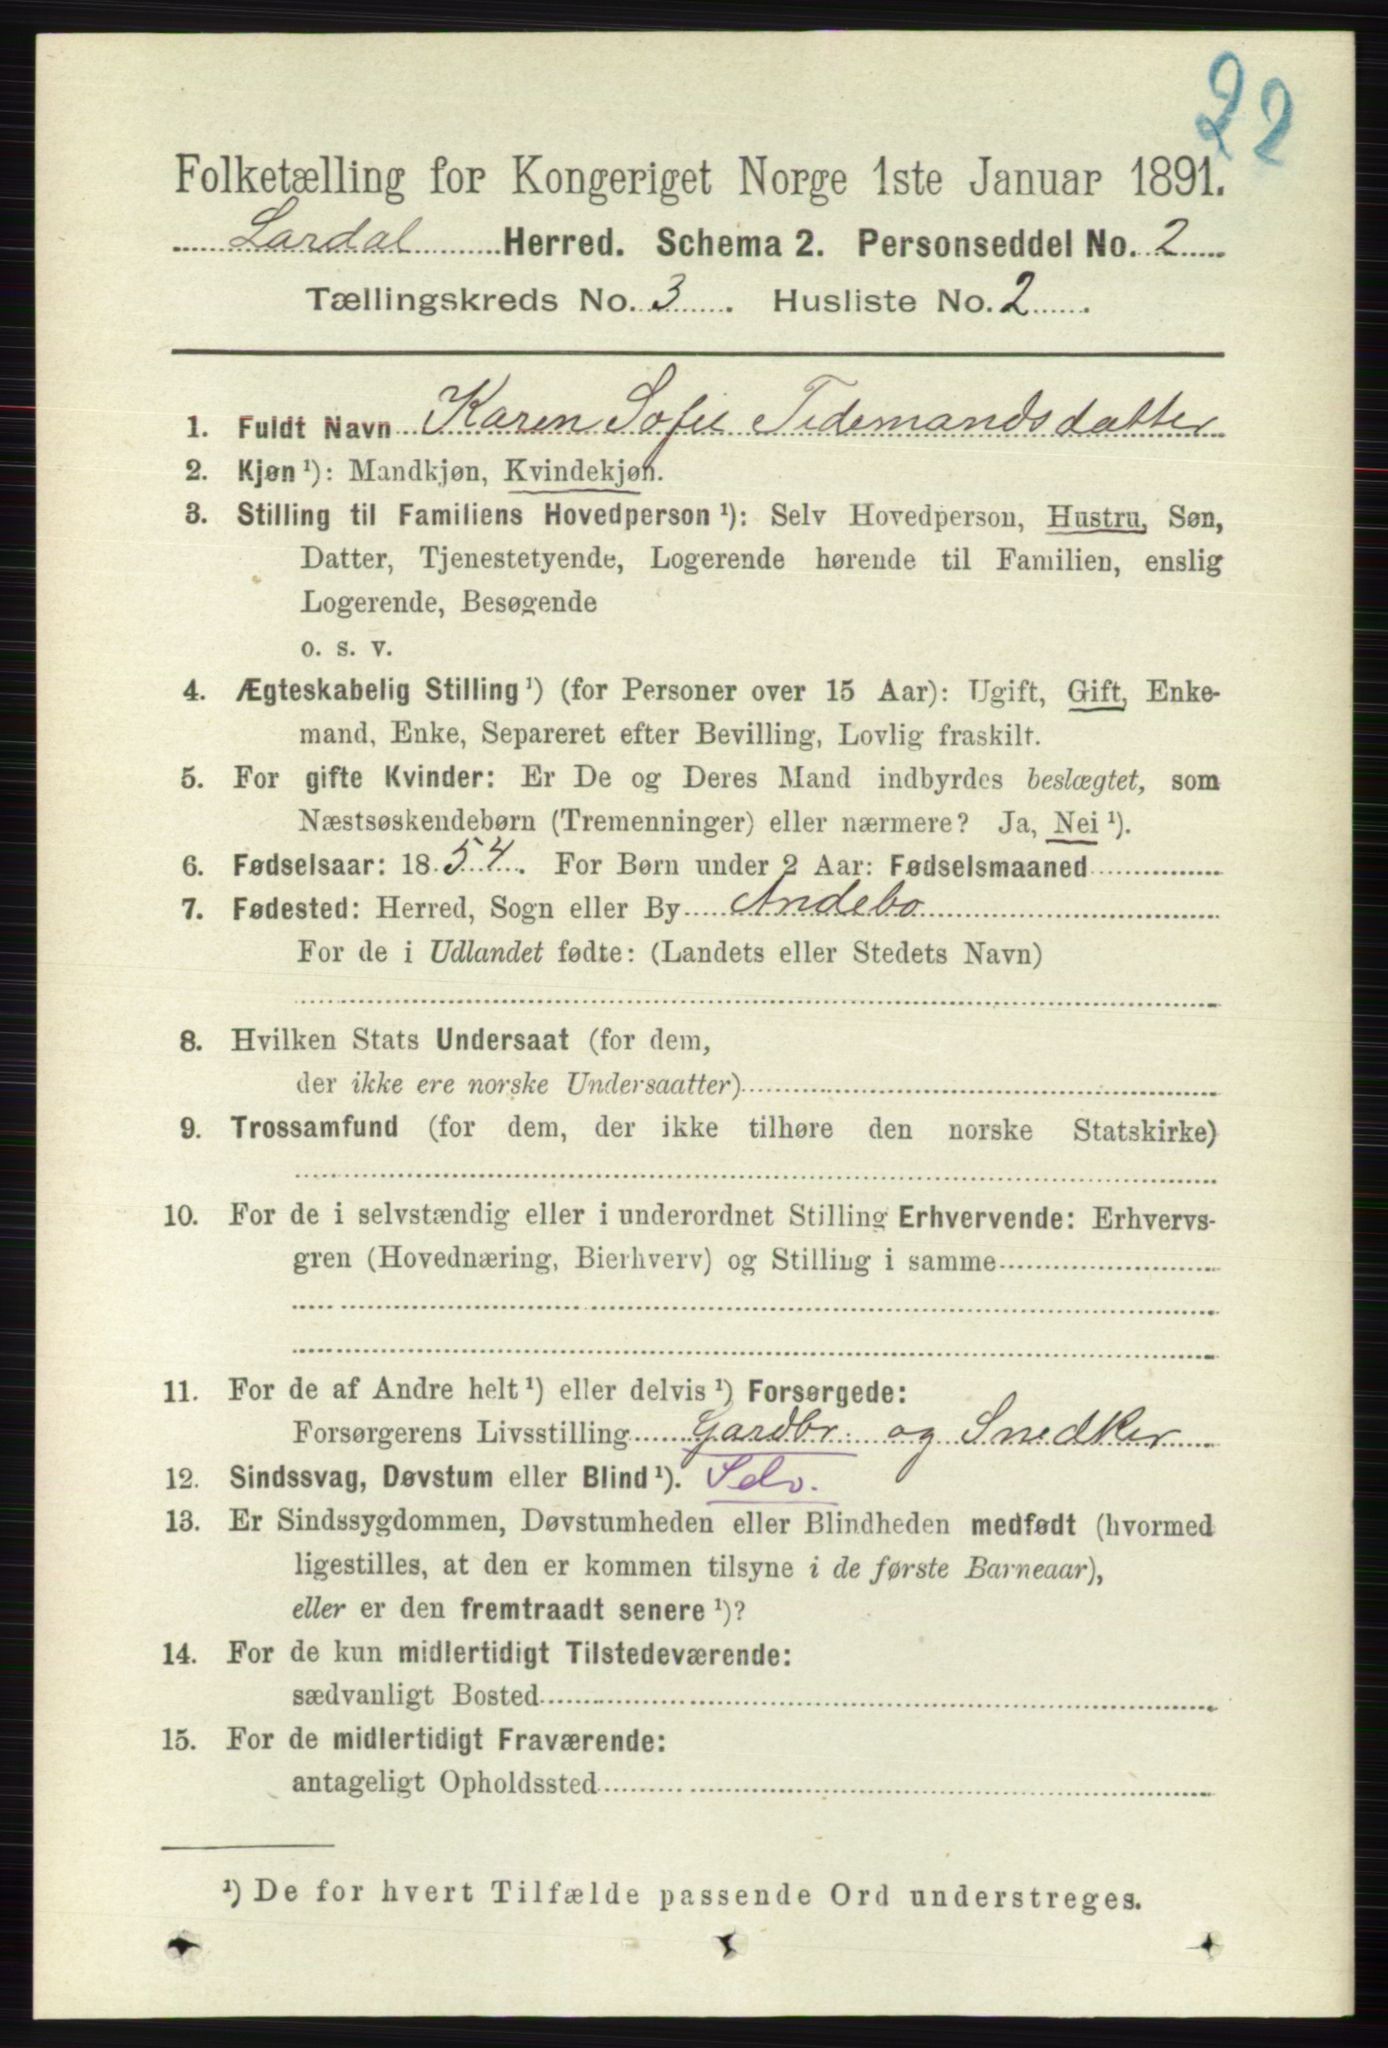 22
Folketælling for Kongeriget Norge 1ste Januar 1891.
Lardal Herred. Schema 2. Personseddel No. 2
Tællingskreds No. 3. Husliste No. 2.
1. Fuldt Navn Karen Sofie Tidemandsdatter
2. Kjøn ¹): Mandkjøn, Kvindekjøn.
3. Stilling til Familiens Hovedperson ¹): Selv Hovedperson, Hustru, Søn,
Datter, Tjenestetyende, Logerende hørende til Familien, enslig
Logerende, Besøgende
o. s. v.
4. Ægteskabelig Stilling ¹) (for Personer over 15 Aar): Ugift, Gift, Enke-
mand, Enke, Separeret efter Bevilling, Lovlig fraskilt.
5. For gifte Kvinder: Er De og Deres Mand indbyrdes beslægtet, som
Næstsøskendebørn (Tremenninger) eller nærmere? Ja, Nei ¹).
6. Fødselsaar: 1854. For Børn under 2 Aar: Fødselsmaaned
7. Fødested: Herred, Sogn eller By Andebo
For de i Udlandet fødte: (Landets eller Stedets Navn)
8. Hvilken Stats Undersaat (for dem,
der ikke ere norske Undersaatter)
9. Trossamfund (for dem, der ikke tilhøre den norske Statskirke)
10. For de i selvstændig eller i underordnet Stilling Erhvervende: Erhvervs-
gren (Hovednæring, Bierhverv) og Stilling i samme
11. For de af Andre helt ¹) eller delvis ¹) Forsørgede:
Forsørgerens Livsstilling Gardbr. og Snedker
12. Sindssvag, Døvstum eller Blind ¹). Selv.
13. Er Sindssygdommen, Døvstumheden eller Blindheden medfødt (hvormed
ligestilles, at den er kommen tilsyne i de første Barneaar),
eller er den fremtraadt senere ¹)?
14. For de kun midlertidigt Tilstedeværende:
sædvanligt Bosted
15. For de midlertidigt Fraværende:
antageligt Opholdssted
¹) De for hvert Tilfælde passende Ord understreges.